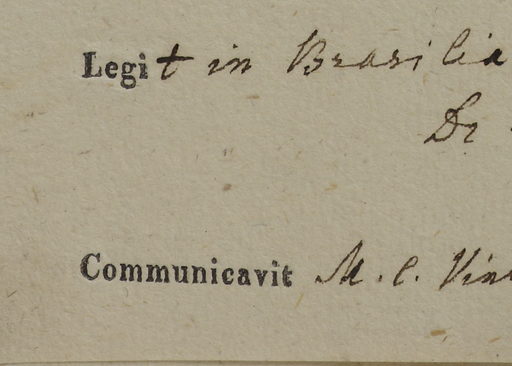 Legit in Brasilia
Dr
Communicavit M. C.